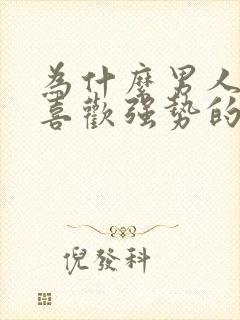 為什麼男人
喜歡強勢的
倪發科